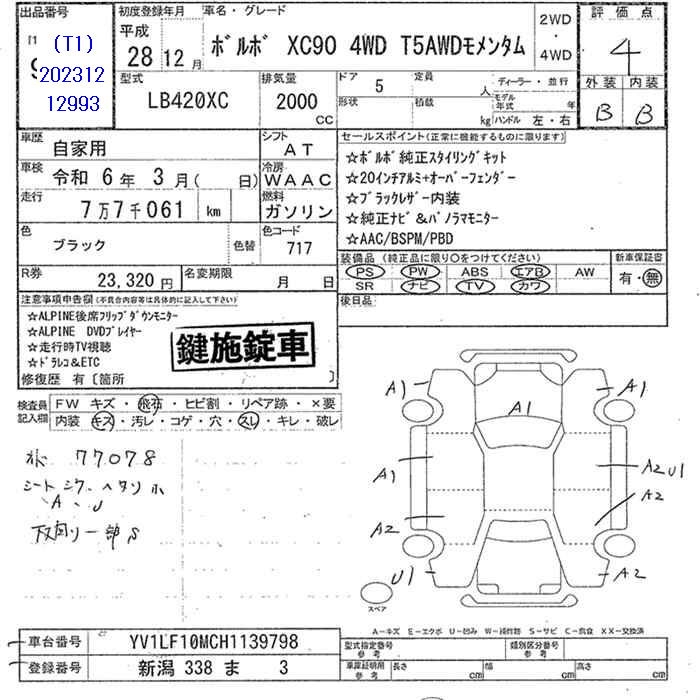 出品番号
(T1)
202312
12993
初度登録年月
平成
28 12 月
車名 ・ グレード
ボルボ XC90 4WD T5AWDモメンタム
2WD
・
4WD
評 価 点
4
外 装 内 装
B B
型式
LB420XC
排気量
2000
CC
ドア
5
定員
人
形状
積載
kg
ディーラー ・ 並行
モデル年式
年
ハンドル 左・右
車歴
自家用
シフト
AT
車検
令和 6 年 3 月( 日)
冷房
WAAC
走行
7 万 7 千 061 km
燃料
ガソリン
色
ブラック
色替
色コード
717
R券
23,320 円
名変期限
月 日
セールスポイント(正常に機能するものに限ります)
☆ボルボ純正スタイリングキット
☆20インチアルミ+オーバーフェンダー
☆ブラックレザー内装
☆純正ナビ&パノラマモニター
☆AAC/BSPM/PBD
装備品 (純正品に限り○をつけてください)
PS PW ABS エアB AW
SR ナビ TV カワ
新車保証書
有・無
後日品
注意事項申告欄(不具合内容等は具体的に記入して下さい)
☆ALPINE後席フリップダウンモニター
☆ALPINE DVDプレイヤー
☆走行時TV視聴
☆ドラレコ&ETC
鍵施錠車
修復歴 有〔箇所 〕
検査員記入欄
FW キズ ・ 飛石 ・ ヒビ割 ・ リペア跡 ・ ×要
内装 キズ ・ 汚レ ・ コゲ ・ 穴 ・ スレ ・ キレ ・ 破レ
77078
シート シワ ヘタリ
A 、 U
下回り一部S
A1
A1
A1
A1
A2 U1
A2
A2
U1
A2
スペア
A−キズ E−エクボ U−凹み W−補修跡 S−サビ C−腐食 XX−交換済
車台番号
YV1LF10MCH1139798
登録番号
新潟 338 ま 3
型式指定番号
参 考
類別区分番号
参 考
車庫証明用
参 考
長さ
cm
幅
cm
高さ
cm